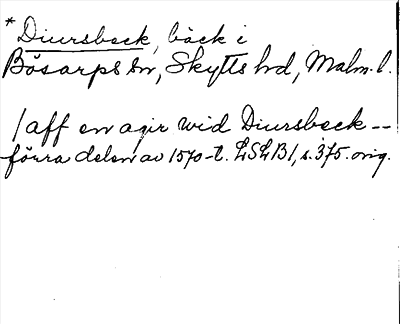 * Diursbeck, bäck i
Bösarps sn, Skytts hd, Malm. l.
/aff en agir wid Diursbeck --
förra delen av 1570-t. LSLB1, s. 375. orig.